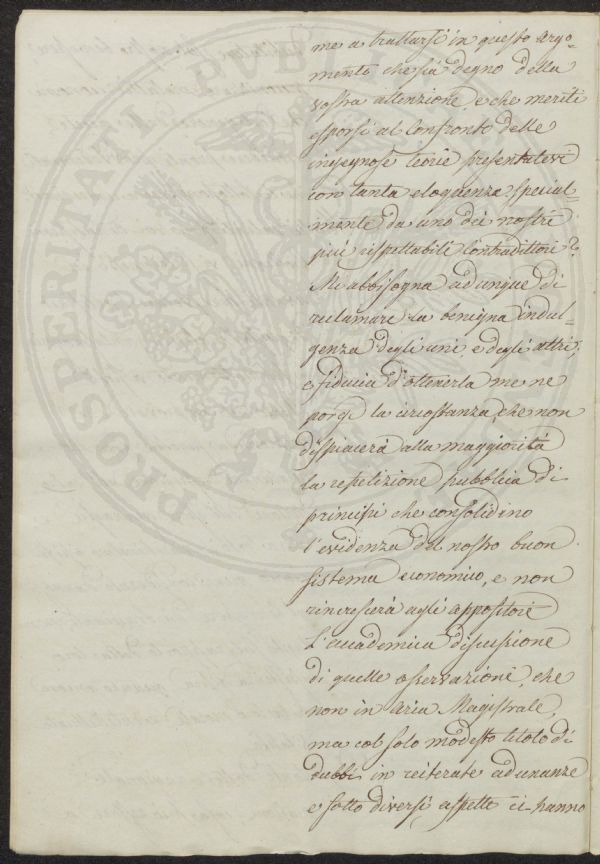 me a trattarsi in questo argo-
mento che sia degno della
vostra attenzione e che meriti
esporsi al confronto delle
ingegnose teorie presentatevi
con tanta eloquenza special-
mente da uno dei nostri
più rispettabili Contradittori?
Mi abbisogna adunque di
reclamare la benigna indul-
genza degli uni e degli altri,
e fiducia d'ottenerla me ne
porge la circostanza, che non
dispiacerà alla maggiorità
la repetizione pubblica di
principi che consolidino
l'evidenza del nostro buon
sistema economico, e non
rincrescerà agli oppositori
l'accademica discussione
di quelle osservazioni, che
non in aria Magistrale,
ma col solo modesto titolo di
dubbi in reiterate adunanze
e sotto diversi aspetti ci hanno
PROSPERITATI PUBL